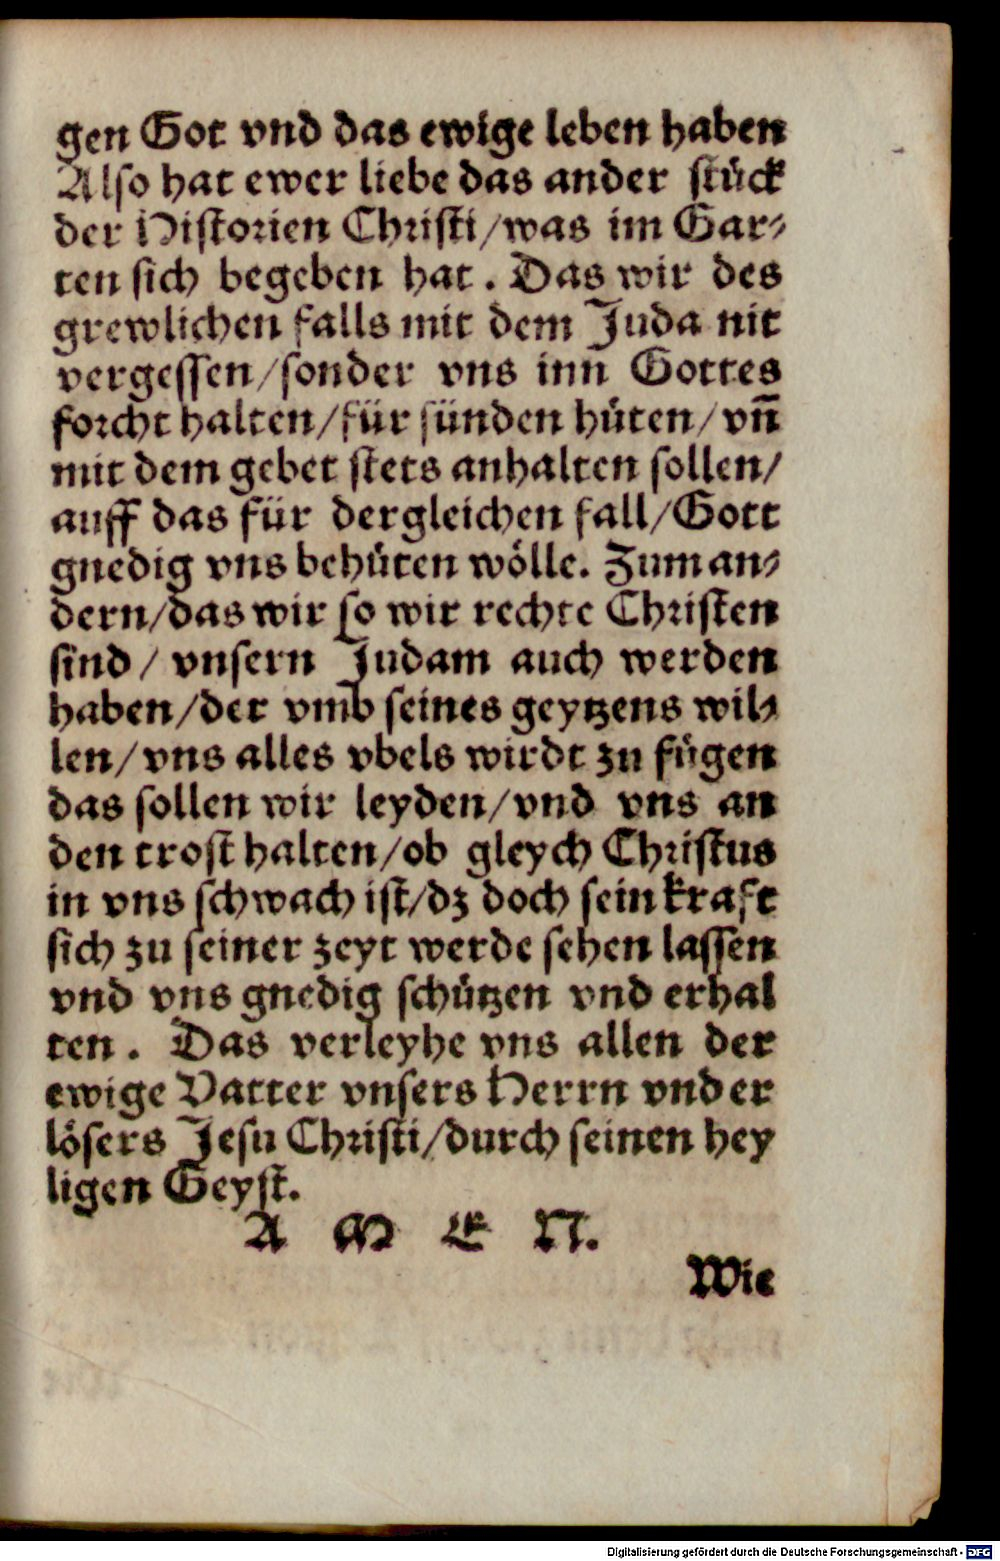 gen Got vnd das ewige leben haben
Also hat ewer liebe das ander stück
der Historien Christi/was im Gar⸗
ten sich begeben hat. Das wir des
grewlichen falls mit dem Juda nit
vergessen/sonder vns inn Gottes
forcht halten/für sünden hüten/vñ
mit dem gebet stets anhalten sollen/
auff das für dergleichen fall/Gott
gnedig vns behüten wölle. Zum an⸗
dern/das wir so wir rechte Christen
sind/ vnsern Judam auch werden
haben/der vmb seines geytzens wil⸗
len/vns alles vbels wirdt zu fügen
das sollen wir leyden/vnd vns an
den trost halten/ob gleych Christus
in vns schwach ist/dz doch sein kraft
sich zu seiner zeyt werde sehen lassen
vnd vns gnedig schützen vnd erhal
ten. Das verleyhe vns allen der
ewige Vatter vnsers Herrn vnd er
lösers Jesu Christi/durch seinen hey
ligen Geyst.
A M E N.
Wie
Digitalisierung gefördert durch die Deutsche Forschungsgemeinschaft - DFG